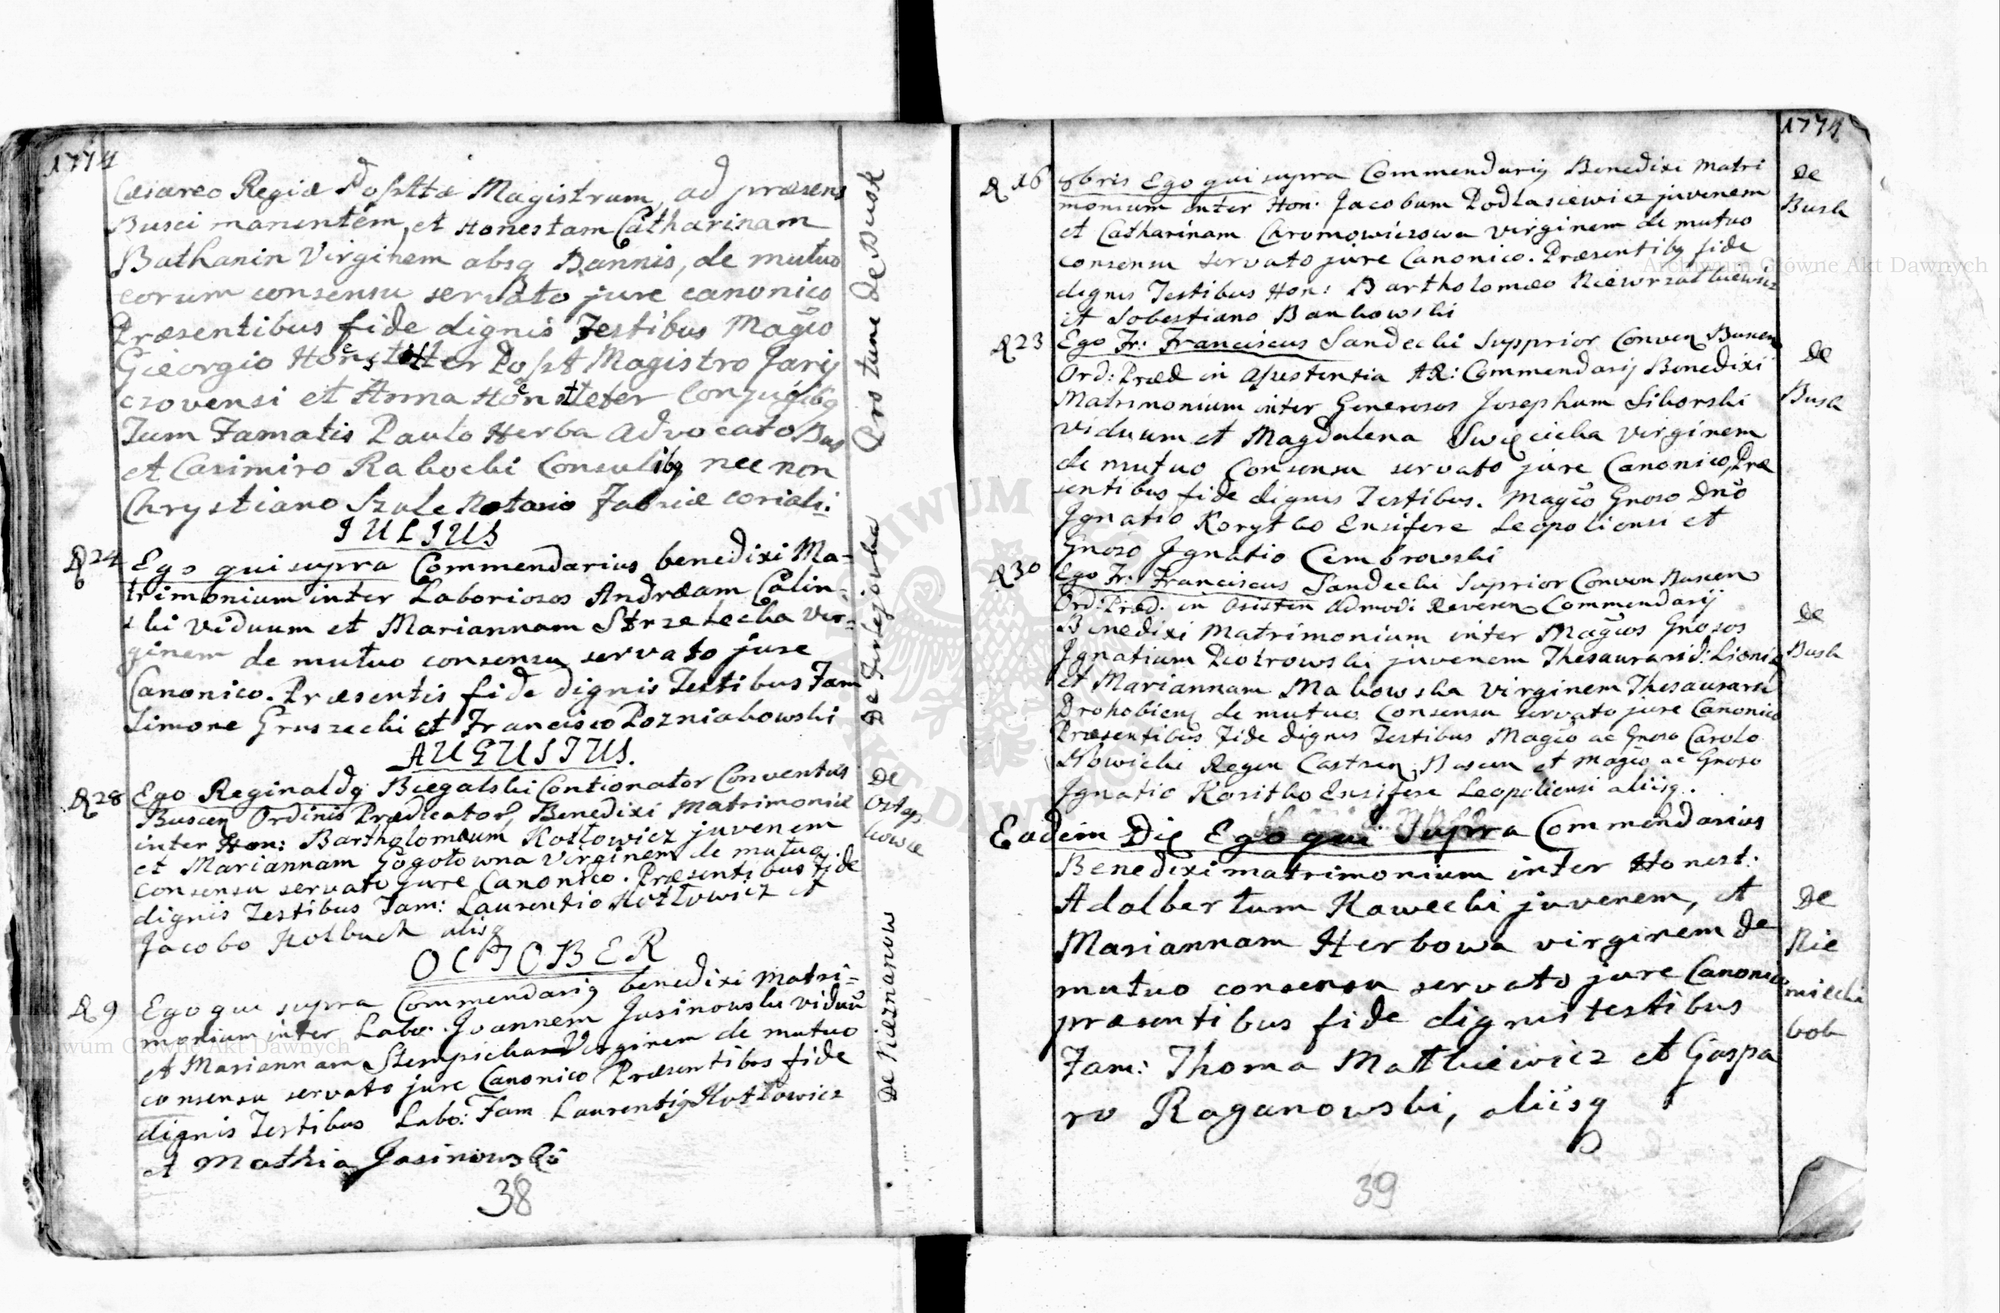 1774
Cæsareo Regiæ Postæ Magistrum, ad præsens
Busci manentem, et Honestam Catharinam
Bathanin Virginem absq Bannis, de mutuo
eorum consensu servato jure canonico
Præsentibus fide dignis Testibus Magco
Gieorgio Magistro Jary
czovensi et Anna Conjugibq
Tum Famatis Paulo Herba Advocato Bus
et Casimiro Rabocki Consulibq nec non
Chrystiano Szule Notario Fabriæ coriali.
De Busk
IULIUS
24 Ego qui supra Commendarius benedixi Ma-
trimonium inter Laboriosos Andræam Calin-
ski viduum et Mariannam Strzelecka vir-
ginem de mutuo consensu servato jure
Canonico. Præsentis fide dignis Testibus Fam
Simone Gruszecki et Francisco Pozniakowski
AUGUSTUS.
28 Ego Reginaldq Biegalski Contionator Conventus
Buscen Ordinis Prædicator, Benedixi Matrimonium
inter Hon: Bartholomæum Kotłowicz juvenem
et Mariannam Gogotowna Virginem de mutuo
consensu servato jure Canonico. Præsentibus Fide
dignis Testibus Fam: Laurentio Kotłowicz et
Jacobo Holbuch aliisq
De
Ostap
kowce
OCTOBER
9 Ego qui supra Commendariq benedixi Matri-
monium inter Labo: Joannem Jasinowski viduum
et Mariannam Stempicka Virginem de mutuo
consensu servato jure Canonico Præsentibus fide
dignis Testibus Labo: Fam Laurentio Kotłowicz
et Mathia Jasinowski
De Kiernanow
38
1774
16 8bris Ego qui supra Commendariq Benedixi Matri
monium inter Hon: Jacobum Podlasiewicz juvenem
et Catharinam Chromowiczowa virginem de mutuo
consensu servato jure Canonico. Præsentibq fide
dignis Testibus Hon: Bartholomæo
et Sobestiano Bankowski
de
Busk
23 Ego Fr: Franciscus Sandecki Supprior Conven Buscen
Ord: Præd in Assistentia AR: Commendarij Benedixi
Matrimonium inter Generosos Josephum Siborski
viduum et Magdalena Swięcicka Virginem
de mutuo Consensu servato jure Canonico, Præ
sentibus fide dignis Testibus. Magco Gnoso Dno
Ignatio Korytko Ensifere Leopoliensi et
Gnoso Ignatio Cembrowski
de
Busk
30 Ego Fr: Franciscus Sandecki Suprior Conven Buscen
Ord: Præd. in Asisten Admodi Reveren Commendarij
Benedixi Matrimonium inter Magcos Gnosos
Ignatium Piotrowski juvenem
et Mariannam Makowska Virginem
de mutuo Consensu servato jure Canonico
Præsentibus Fide dignis Testibus Magco ac Gnoso Carolo
Nowicki Regen Castren, Buscen et Magco ac Gnoso
Ignatio Koritko Ensifere Leopoliensi aliisq.
de
Busk
Eadem Die Ego qui Supra Commendarius
Benedixi matrimonium inter Honest:
Adalbertum Kawecki juvenem, et
Mariannam Herbowa virginem de
mutuo consensu servato jure Canonico
præsentibus fide dignis testibus
Fam: Thoma Matkiewicz et Gaspa
ro Raganowski, aliisq
De
Nie
miecki
bok
39
Archiwum Główne Akt Dawnych
Archiwum Główne Akt Dawnych